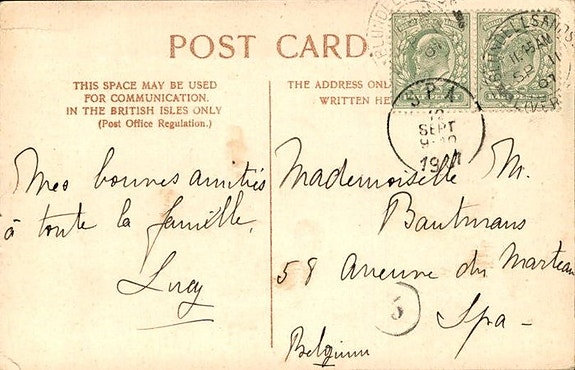 POST CARD.
THIS SPACE MAY BE USED
FOR COMMUNICATION.
IN THE BRITISH ISLES ONLY
(Post Office Regulation.)
THE ADDRESS ONL
WRITTEN HE
BLUNDELLSANDS
11.15 AM
SP 11
07
LIVER
SPA
1
12
SEPT
9
Mes bonnes amitiés
à toute la famille.
Lucy
Mademoiselle M.
Bautmans
58 Avenue du Marteau
Spa -
Belgium
5